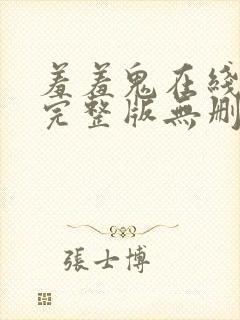 羞羞鬼在綫
完整版無刪
張士博